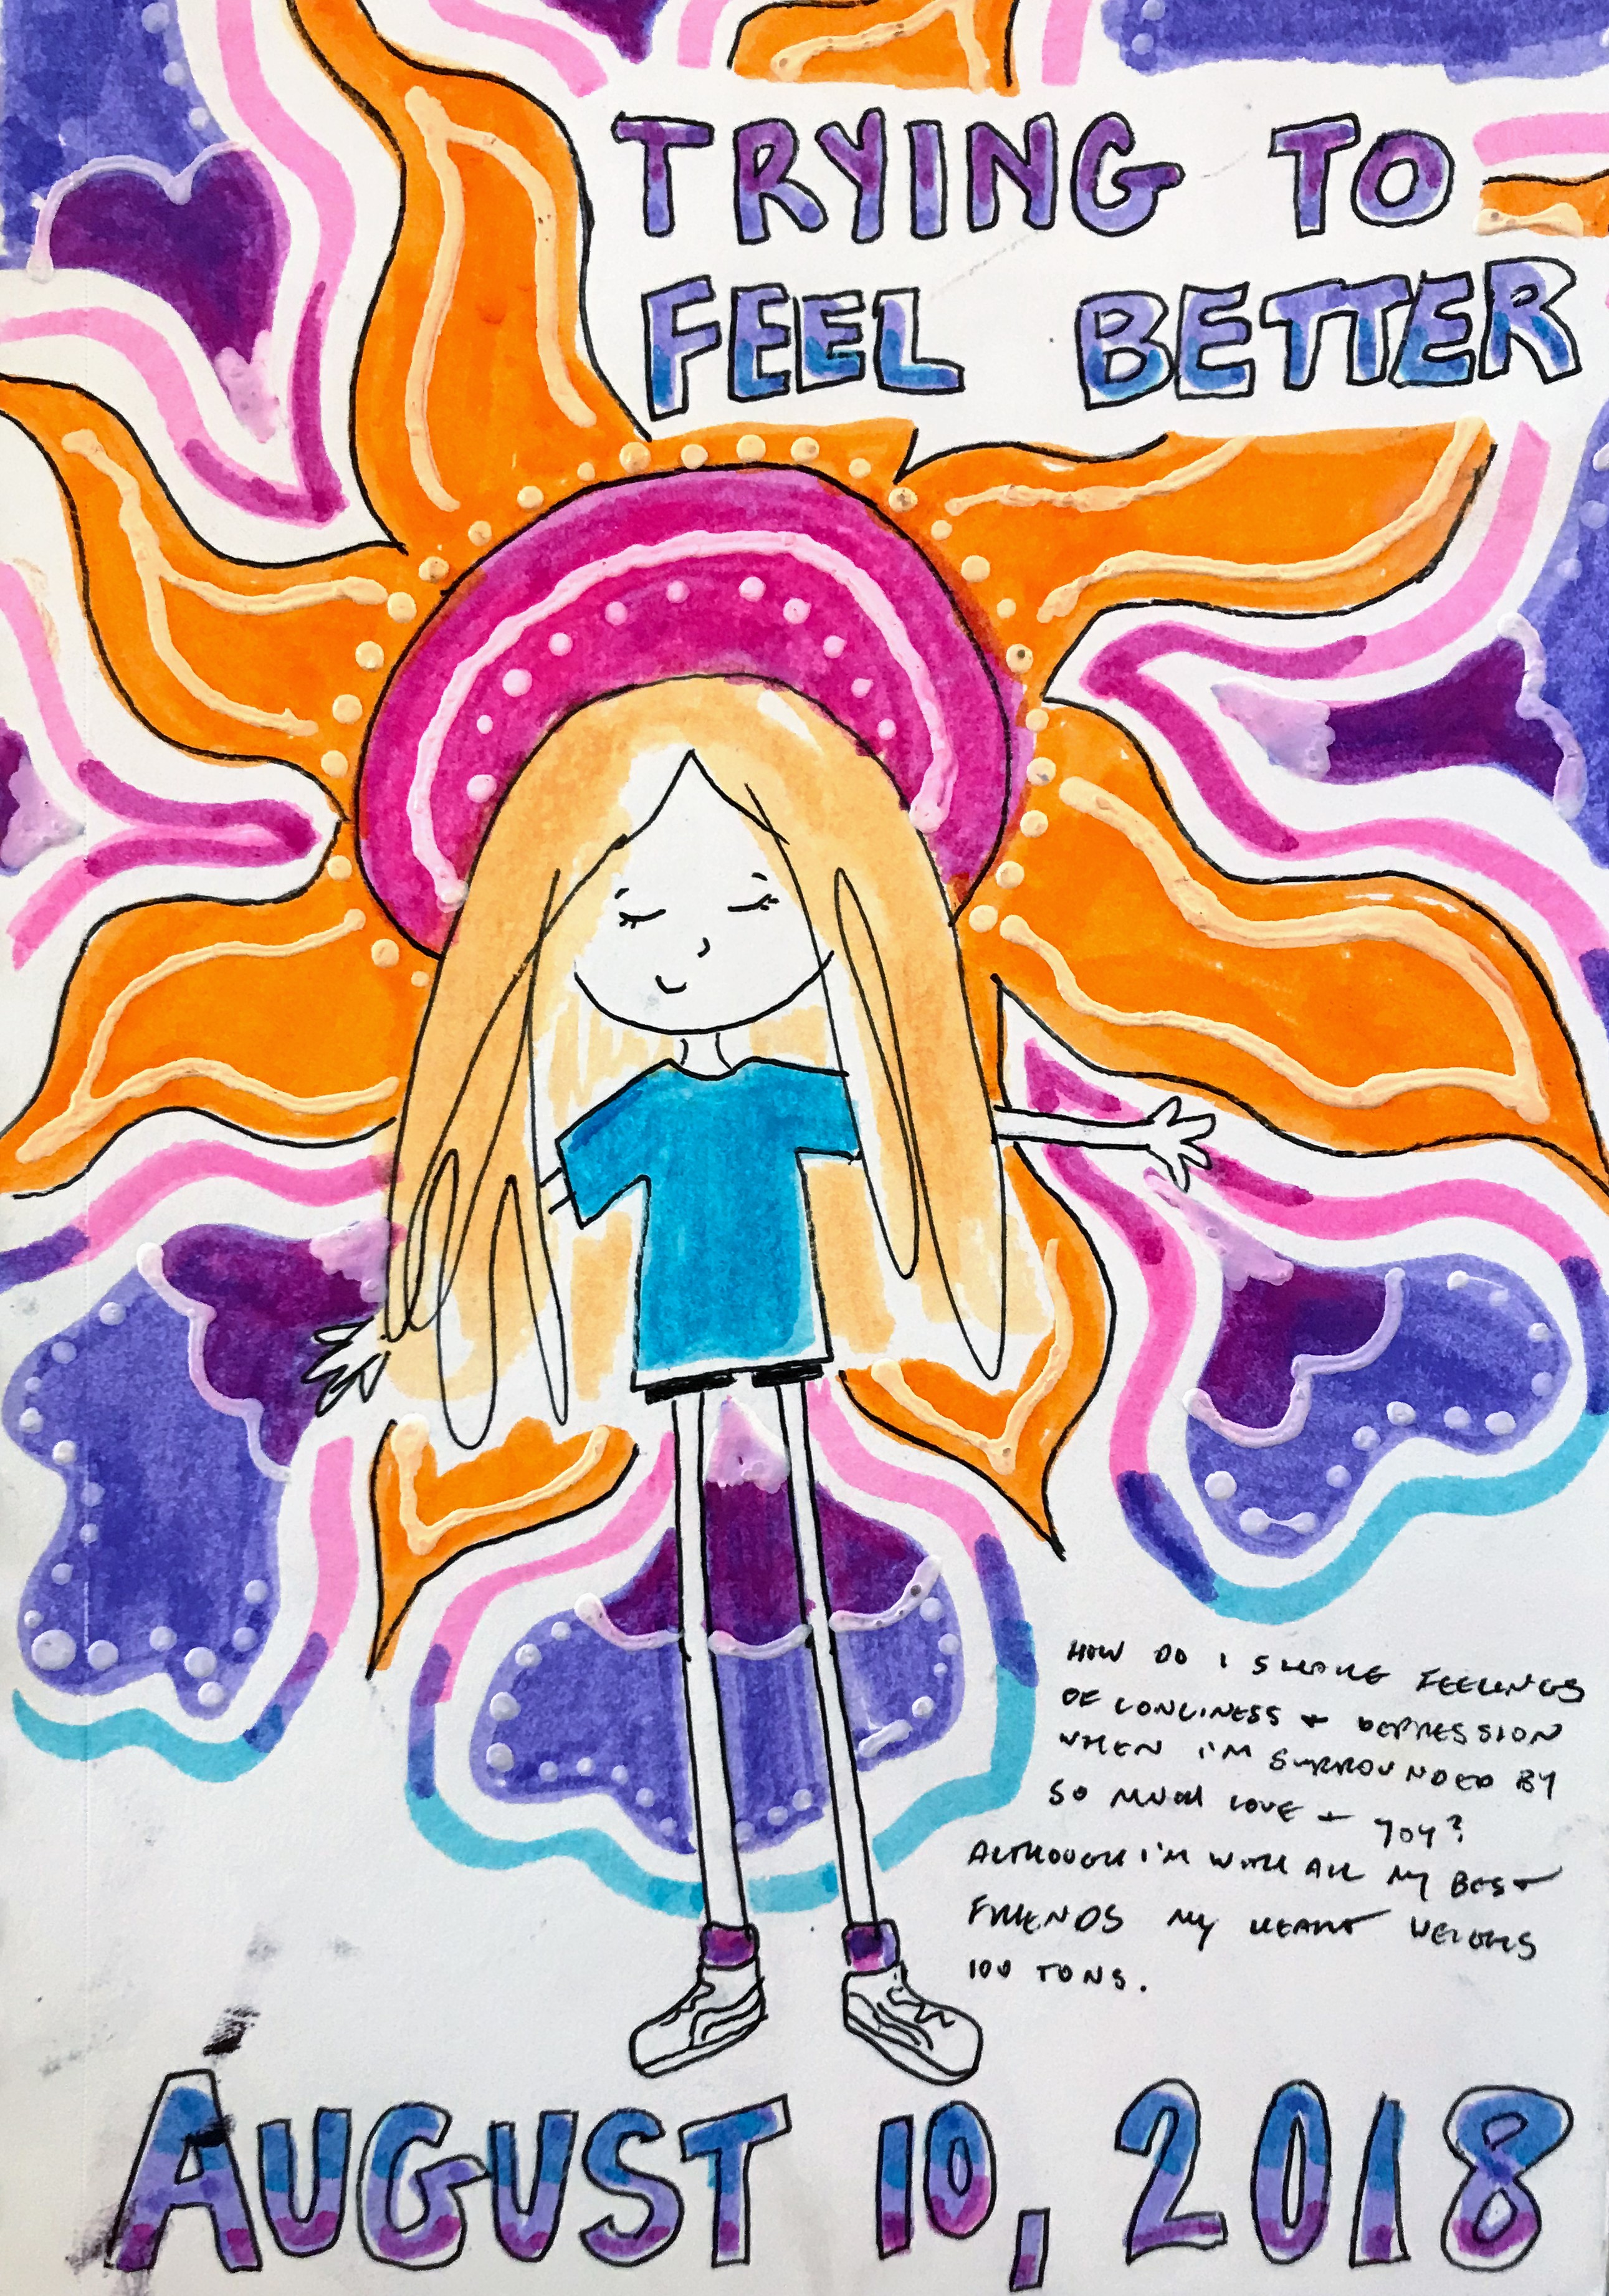 TRYING TO
FEEL BETTER
HOW DO I SHAKE FEELINGS
OF LONLINESS + DEPRESSION
WHEN I'M SURROUNDED BY
SO MUCH LOVE + JOY?
ALTHOUGH I'M WITH ALL MY BEST
FRIENDS MY HEART WEIGHS
100 TONS.
AUGUST 10, 2018